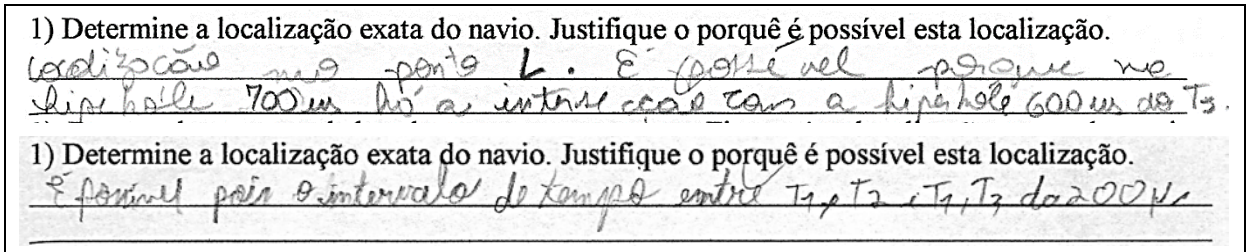 1) Determine a localização exata do navio. Justifique o porquê é possível esta localização.
Localização no ponto L. É possível porque na
hiperbole 700 us há a intersecção com a hiperbole 600 us do T3.
1) Determine a localização exata do navio. Justifique o porquê é possível esta localização.
É possível pois o intervalo de tempo entre T1, T2 e T1, T3 da 200 μs